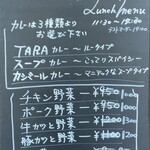 Lunch menu
11:30〜14:30
ラストオーダー14:00
カレーは3種類より
お選び下さい
TARA カレー 〜 ルータイプ
スープカレー 〜 こってりスパイシー
カシミールカレー 〜 マニアックなスープタイプ
チキン野菜 ― ¥950
ポーク野菜 ― ¥950
牛カツと野菜 ― ¥1200
豚カツと野菜 ― ¥1100